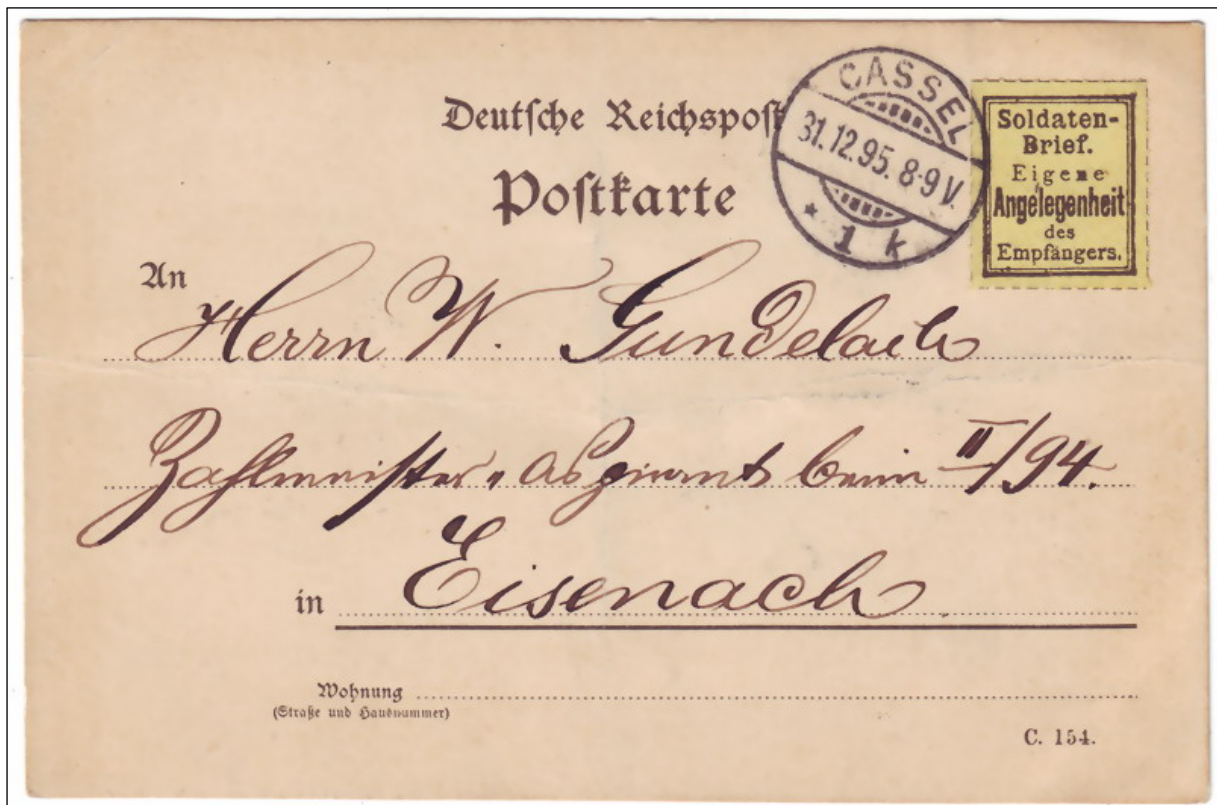 Deutsche Reichspost
Postkarte
CASSEL
31.12.95. 8-9 V.
* 1 k
Soldaten-
Brief.
Eigene
Angelegenheit
des
Empfängers.
An
Herrn W. Gundelach
Zahlmeister, Aspirant beim II/94.
in Eisenach
Wohnung
(Straße und Hausnummer)
C. 154.